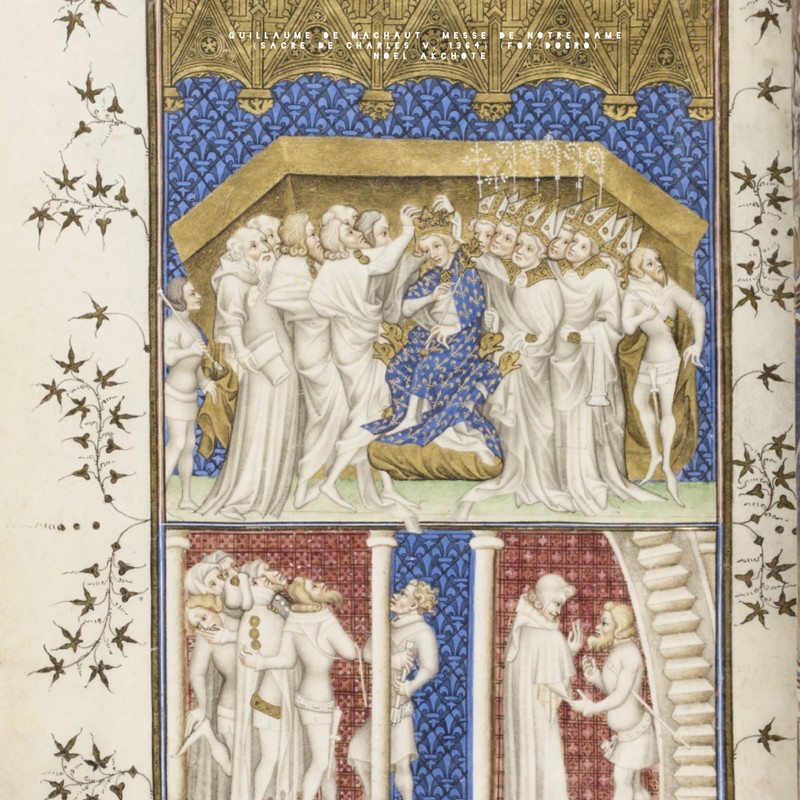 GUILLAUME DE MACHAUT MESSE DE NOTRE DAME
(SACRE DE CHARLES V, 1364) (FOR DOBRO)
NOËL AKCHOTÉ